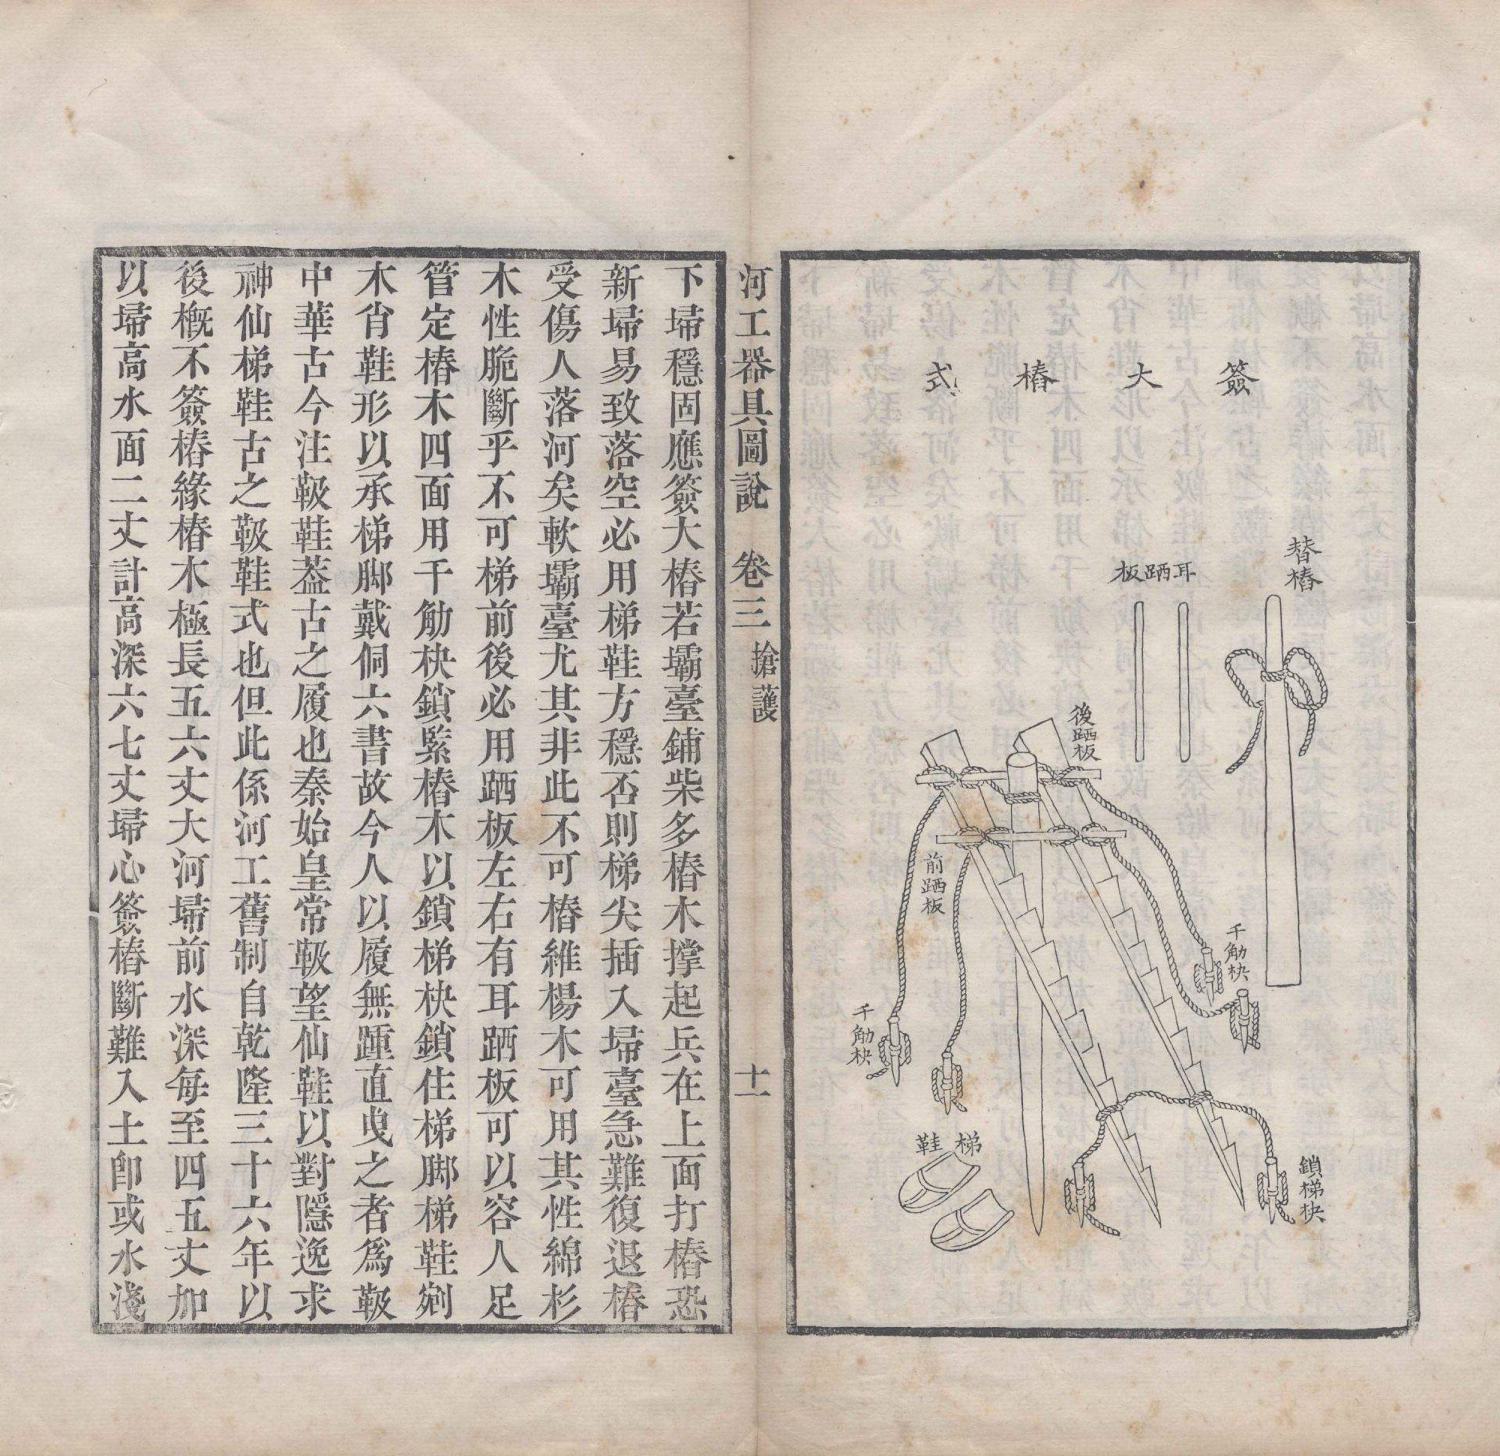 簽大樁式
替樁
耳跴板
後跴板
前跴板
千觔柍
千觔柍
鎖梯柍
梯鞋
河工器具圖說 卷三 搶護 十一
下埽穩固應簽大樁若壩臺鋪柴多樁木撑起兵在上面打樁恐
新埽易致落空必用梯鞋方穩否則梯尖插入埽臺急難復退樁
受傷人落河矣軟壩臺尤其非此不可樁維楊木可用其性綿杉
木性脆斷乎不可梯前後必用跴板左右有耳跴板可以容人足
管定樁木四面用千觔柍鎖緊樁木以鎖梯柍鎖住梯脚梯鞋剜
木肖鞋形以承梯脚戴侗六書故今人以履無踵直曳之者爲靸
中華古今注靸鞋葢古之履也秦始皇常靸望仙鞋以對隱逸求
神仙梯鞋古之靸鞋式也但此係河工舊制自乾隆三十六年以
後槪不簽樁緣樁木極長五六丈大河埽前水深每至四五丈加
以埽高水面二丈計高深六七丈埽心簽樁斷難入土卽或水淺